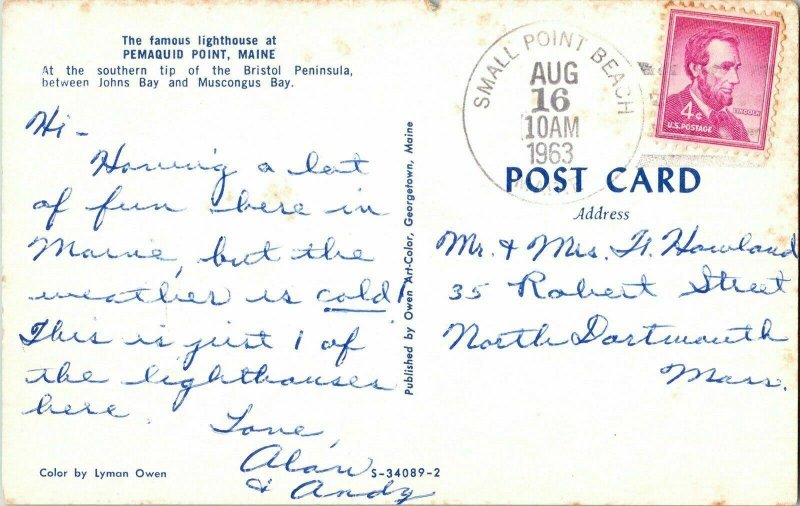 The famous lighthouse at
PEMAQUID POINT, MAINE
At the southern tip of the Bristol Peninsula,
between Johns Bay and Muscongus Bay.
Hi -
Having a lot
of fun here in
Maine, but the
weather is cold!
This is just 1 of
the lighthouses
here.
Love,
Alan
& Andy
Color by Lyman Owen
S-34089-2
Published by Owen Art-Color, Georgetown, Maine
SMALL POINT BEACH
AUG
16
10AM
1963
4¢
LINCOLN
U.S. POSTAGE
POST CARD
Address
Mr. & Mrs. H. Howland
35 Robert Street
North Dartmouth
Mass.